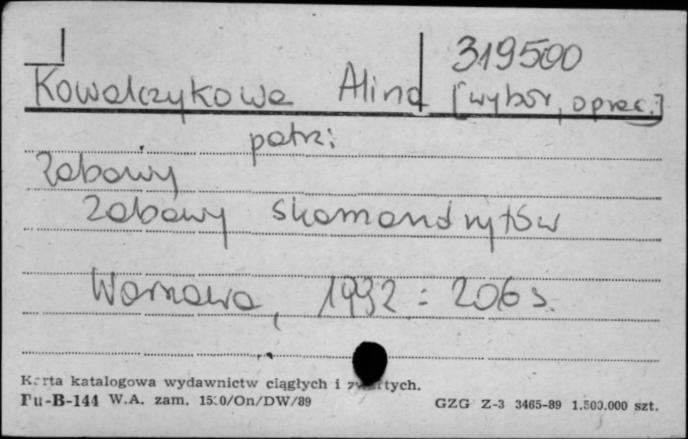 319500
Kowalczykowa Alina [wybór, oprac.]
patrz:
Zabawy
Zabawy skamandrytów
Warszawa, 1992 : 206 s.
Karta katalogowa wydawnictw ciągłych i zwartych.
Pu-B-144 W.A. zam. 1500/On/DW/89
GZG Z-3 3465-89 1.500.000 szt.